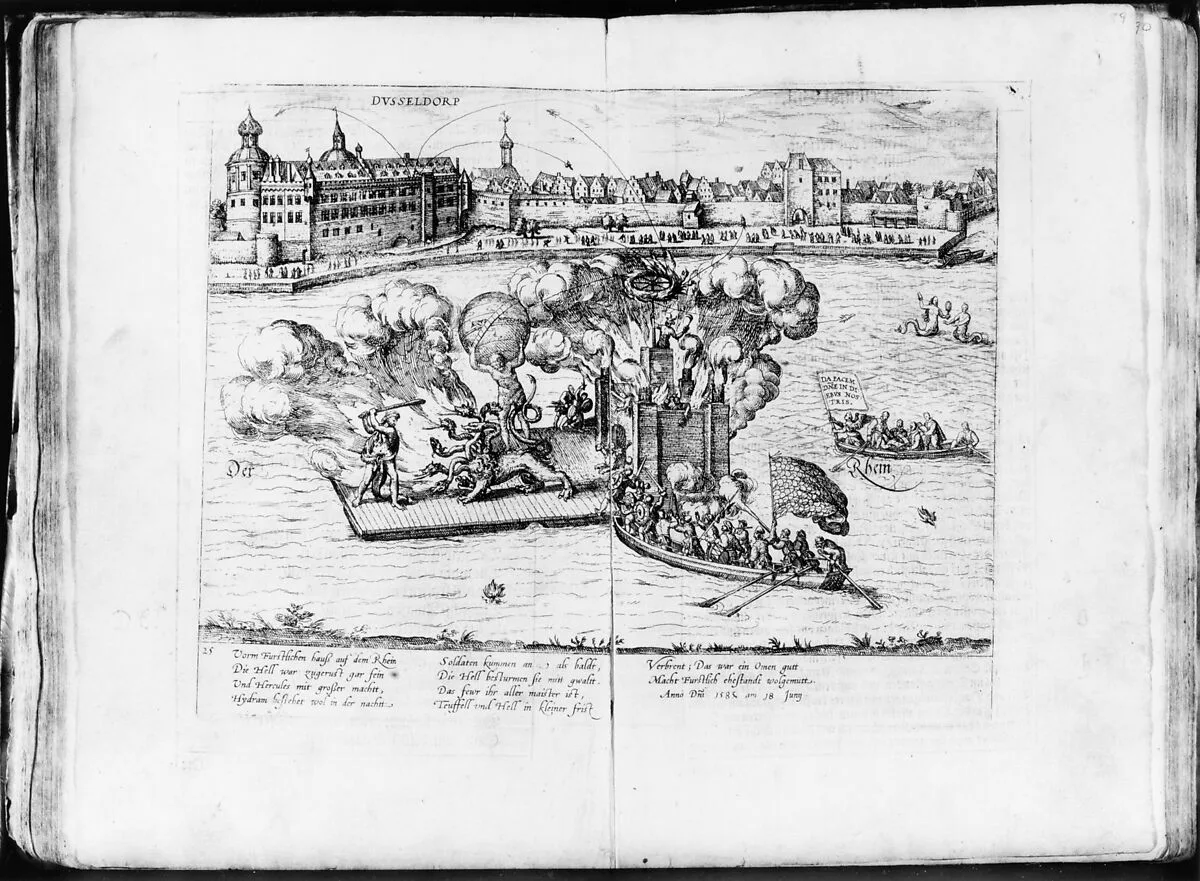 DVSSELDORP
DA PACEM
DÑE IN DI
EBVS NOS
TRIS.
Der
Rhein
25
Vorm Furstlichen hauß auf dem Rhein
Die Hell war zugerust gar fein
Und Hercules mit großer machtt,
Hydram bestehet wol in der nachtt.
Soldaten kummen an als baldt,
Die Hell bestürmen sie mitt gwalt.
Das fewr ihr aller maister ist,
Teuffell vnd Hell in kleiner frist
Verbrent; Das war ein Omen gutt
Macht Furstlich ehestandt wolgemutt.
Anno Dñi 1585 am 18 Junij